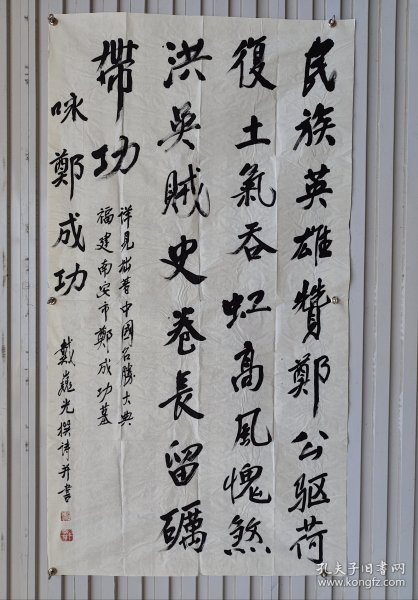 民族英雄贊鄭公驱荷
復土氣吞虹高風愧煞
洪吳賊史卷長留礪
帶功
詳見拙著中國名勝大典
福建南安市鄭成功墓
咏鄭成功
戴巍光撰诗并書
孔夫子旧书网
www.kongfz.com